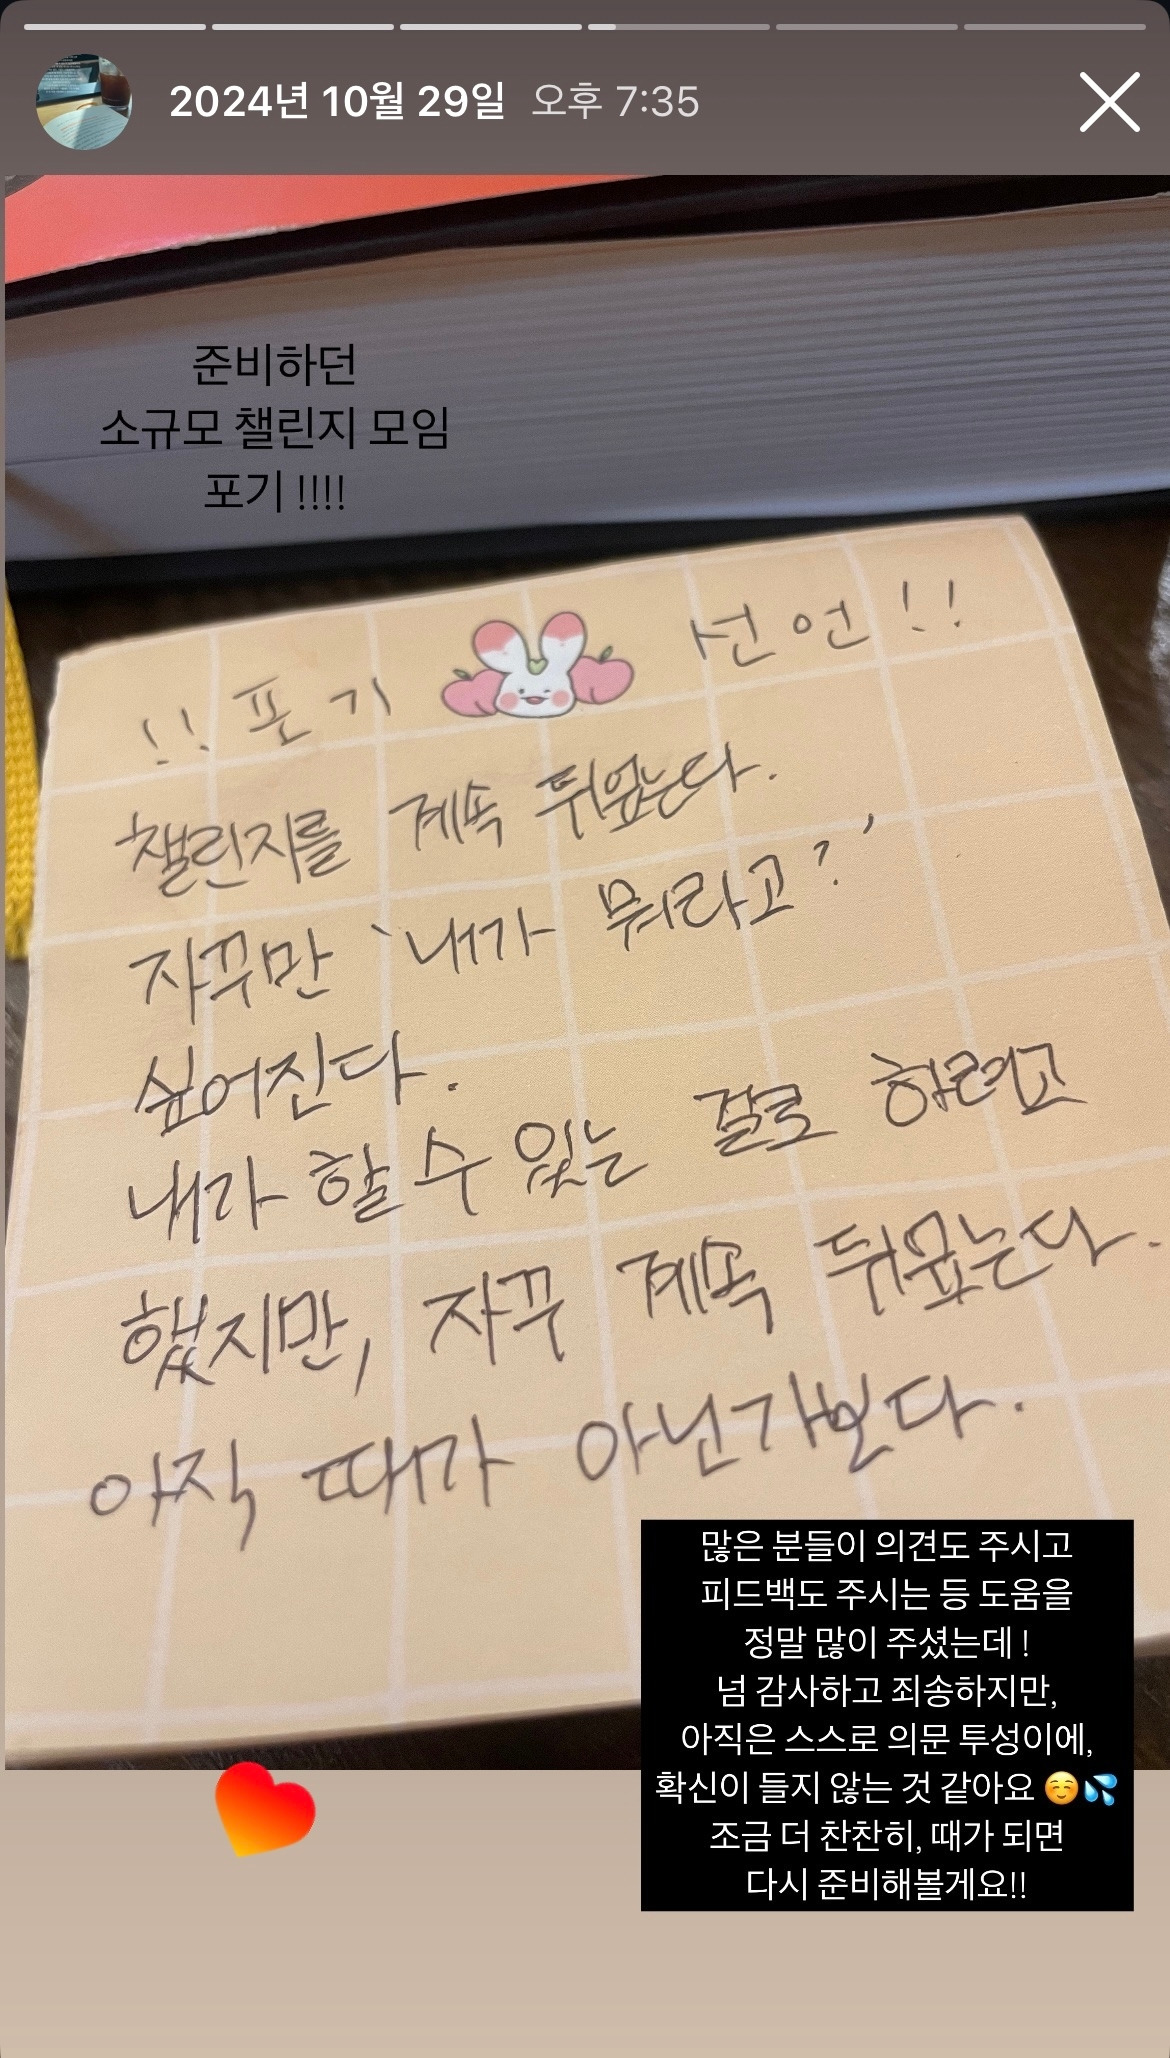 2024년 10월 29일 오후 7:35
준비하던
소규모 챌린지 모임
포기 !!!!
!! 포기 선언 !!
챌린지를 계속 뒤엎는다.
자꾸만 '내가 뭐라고?'
싶어진다.
내가 할 수 있는 걸로 하려고
했지만, 자꾸 계속 뒤엎는다.
아직 때가 아닌가보다.
많은 분들이 의견도 주시고
피드백도 주시는 등 도움을
정말 많이 주셨는데 !
넘 감사하고 죄송하지만,
아직은 스스로 의문 투성이에,
확신이 들지 않는 것 같아요 ☺️💦
조금 더 찬찬히, 때가 되면
다시 준비해볼게요!!